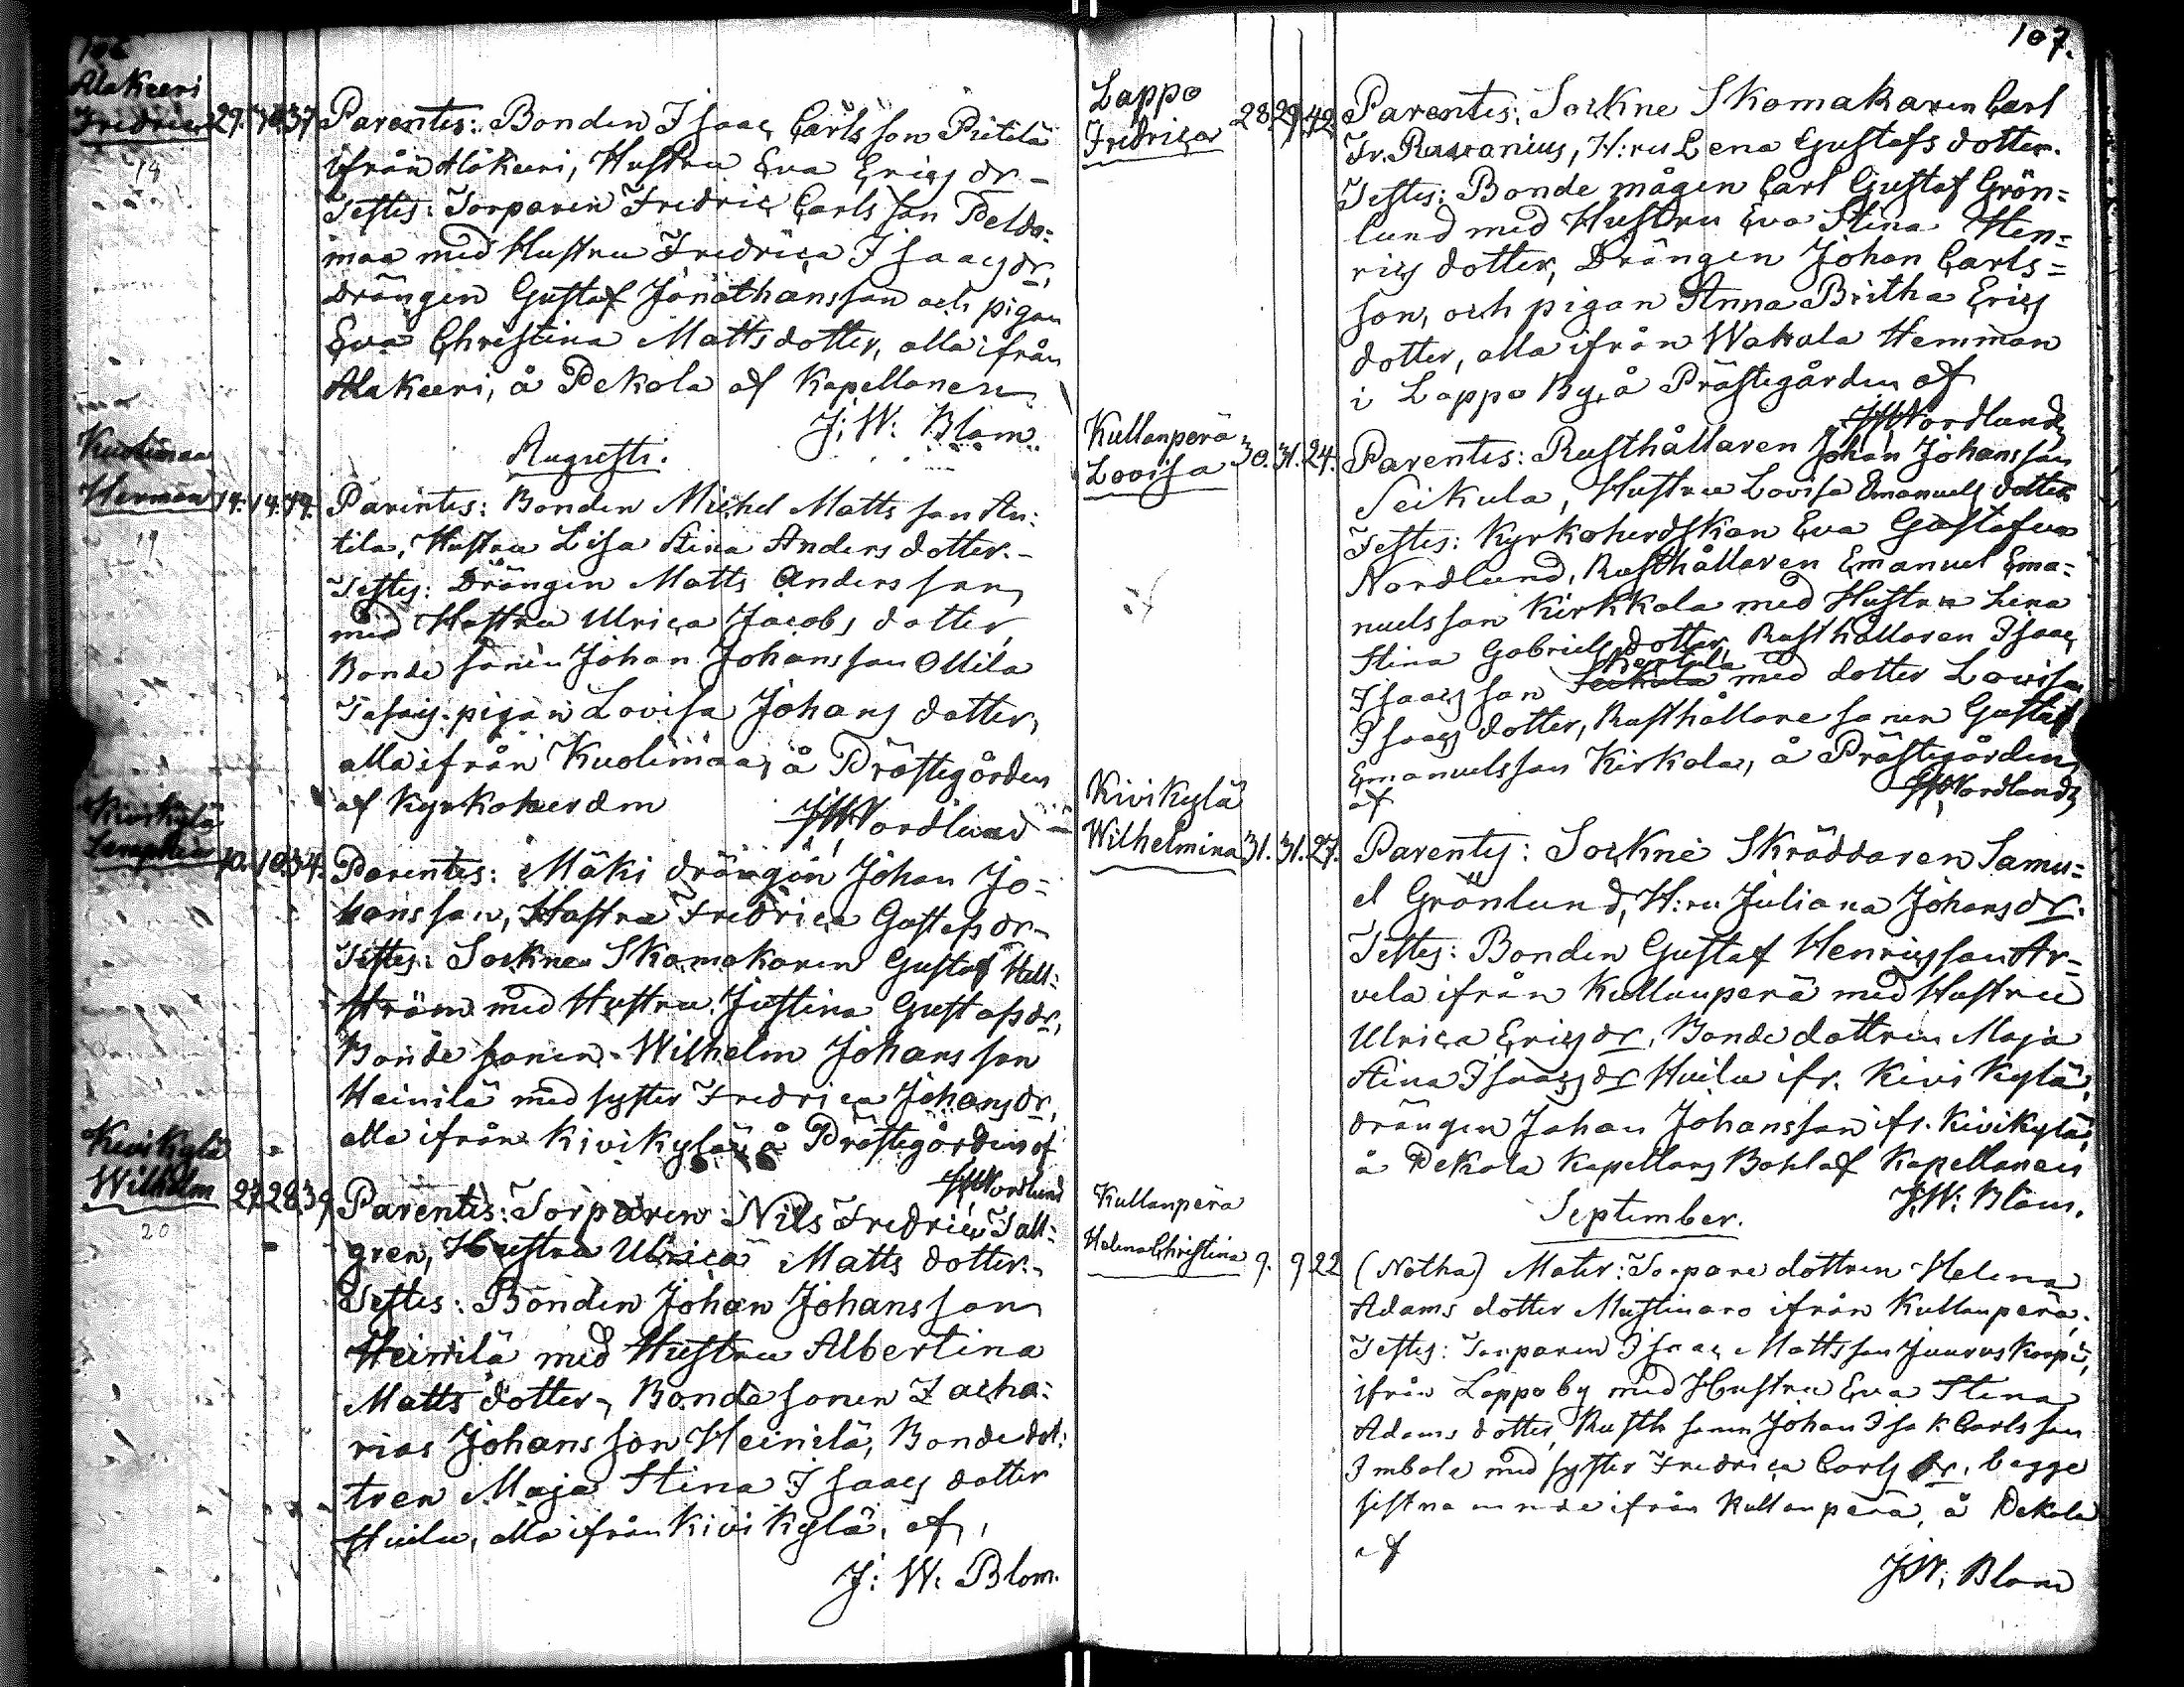 106
Alakeeri
Fredric 29. 30. 37
Parentes: Bonden Isaac Carlsson Pietilä
ifrån Alakeeri, Hustru Eva Ericsdr –
Testes: Torparen Fredric Carlsson Peldo=
maa med Hustru Fredrica Isaacsdr,
Drängen Gustaf Jonathansson och pigan
Eva Christina Mattsdotter, alla ifrån
Alakeeri, å Pekola af Kapellanen
J: W: Blom.
Augusti.
Kuolimaa
Herman 14. 14. 44.
19
Parentes: Bonden Michel Mattsson An:
tila, Hustru Lisa Stina Andersdotter. –
Testes: Drängen Matts Andersson
med Hustru Ulrica Jacobs dotter,
Bonde sonen Johan Johansson Ollila
pigan Lovisa Johans dotter,
alla ifrån Kuolimaa, å Prästegården
af Kyrkoherden
Nordlund
Kivikylä
10. 10. 34.
Parentes: Mäki drängen Johan Jo=
hansson, Hustru Fredrica Gustafsdr –
Testes: Sockne Skomakaren Gustaf Hell:
ström med Hustru Justina Gustafsdr,
Bonde sonen Wilhelm Johansson
Heinilä med syster Fredrica Johansdr,
alla ifrån Kivikylä, å Prästegården af
Nordlund
Kivikylä
Wilhelm 27. 28. 39.
20
Parentes: Torparen Nils Fredric Tall:
gren, Hustru Ulrica Matts dotter. –
Testes: Bonden Johan Johansson
Heinilä med Hustru Albertina
Matts dotter, Bonde sonen Zacha:
rias Johansson Heinilä, Bonde dot:
tren Maja Stina Isaacs dotter
Huilu, alla ifrån Kivikylä, af,
J: W: Blom.
107.
Lappo
Fredrica 28. 29. 42.
Parentes: Sockne Skomakaren Carl
Fr. H:ru Lena Gustafs dotter.
Testes: Bonde mågen Carl Gustaf Grön=
lund med Hustru Eva Stina Hen=
rics dotter, Drängen Johan Carls=
son, och pigan Anna Britha Erics
dotter, alla ifrån Wakala Hemman
i Lappo By, å Prästegården af
Nordlund
Kullanperä
Lovisa 30. 31. 24.
Parentes: Rusthållaren Johan Johansson
Seikula, Hustru Lovisa Emanuels dotter
Testes: Kyrkoherdskan Eva Gustafva
Nordlund, Rusthållaren Emanuel Ema=
nuelsson Kirkkola med Hustru Lena
Stina Gabriels dotter, Rusthållaren Isaac
Isaacsson med dotter Lovisa
Isaacs dotter, Rusthållare sonen Gustaf
Emanuelsson Kirkola, å Prästegården
af
Nordlund
Kivikylä
Wilhelmina 31. 31. 27.
Parentes: Sockne Skräddaren Samu=
el Grönlund, H:ru Juliana Johansdr.
Testes: Bonden Gustaf Henricsson Ar=
vela ifrån Kullanperä med Hustru
Ulrica Ericsdr, Bonde dottren Maja
Stina Isaacsdr Huilu ifr. Kivikylä,
drängen Johan Johansson ifr. Kivikylä,
å Pekola Kapellans Bohl af Kapellanen
J. W: Blom.
September.
Kullanperä
Helena Christina 9. 9 22
(Notha) Mater: Torpare dottren Helena
Adams dotter Mustinaro ifrån Kullanperä.
Testes: Torparen Isaac Mattsson
ifrån Lappo by med Hustru Eva Stina
Adams dotter, Rusth sonen Johan Isak Carlsson
Imbola med syster Fredrica Carls dr, begge
sistnämnde ifrån Kullanperä, å Pekola
af
J W: Blom